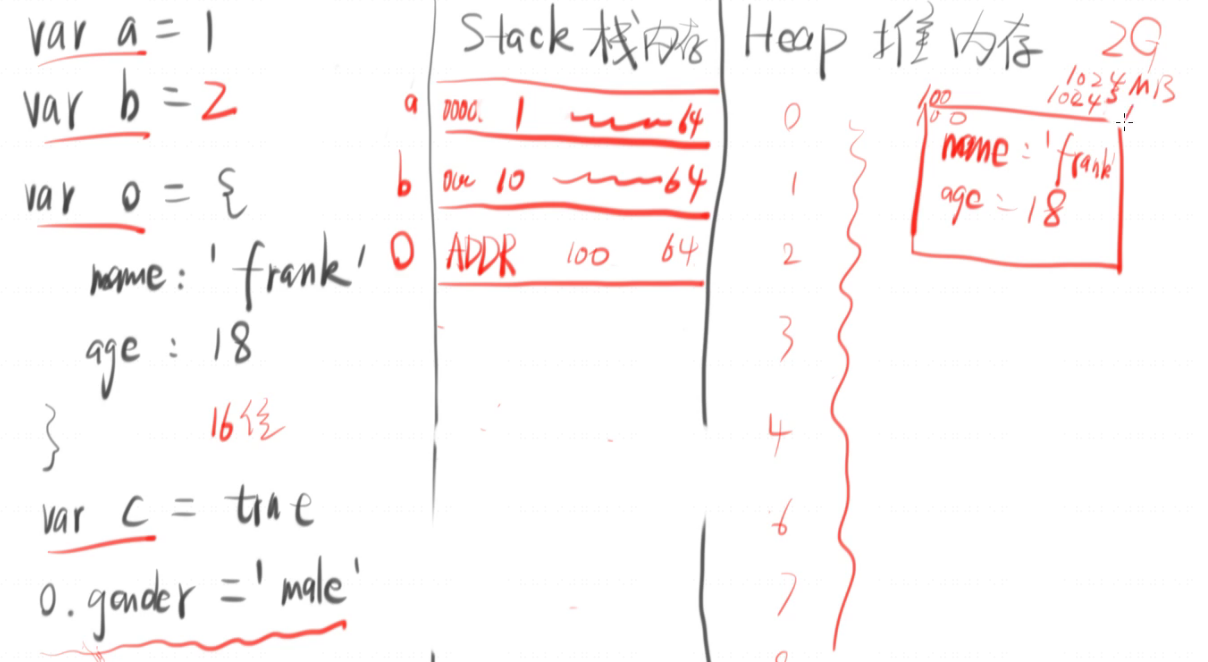 var a = 1
var b = 2
var o = {
name: 'frank'
age : 18
}
16位
var c = true
o.gender = 'male'
Stack 栈内存
a 0000. 1 64
b 10 64
O ADDR 100 64
Heap 堆内存 2G
1024 MB
0
1
2
3
4
6
7
100
name : 'frank'
age = 18